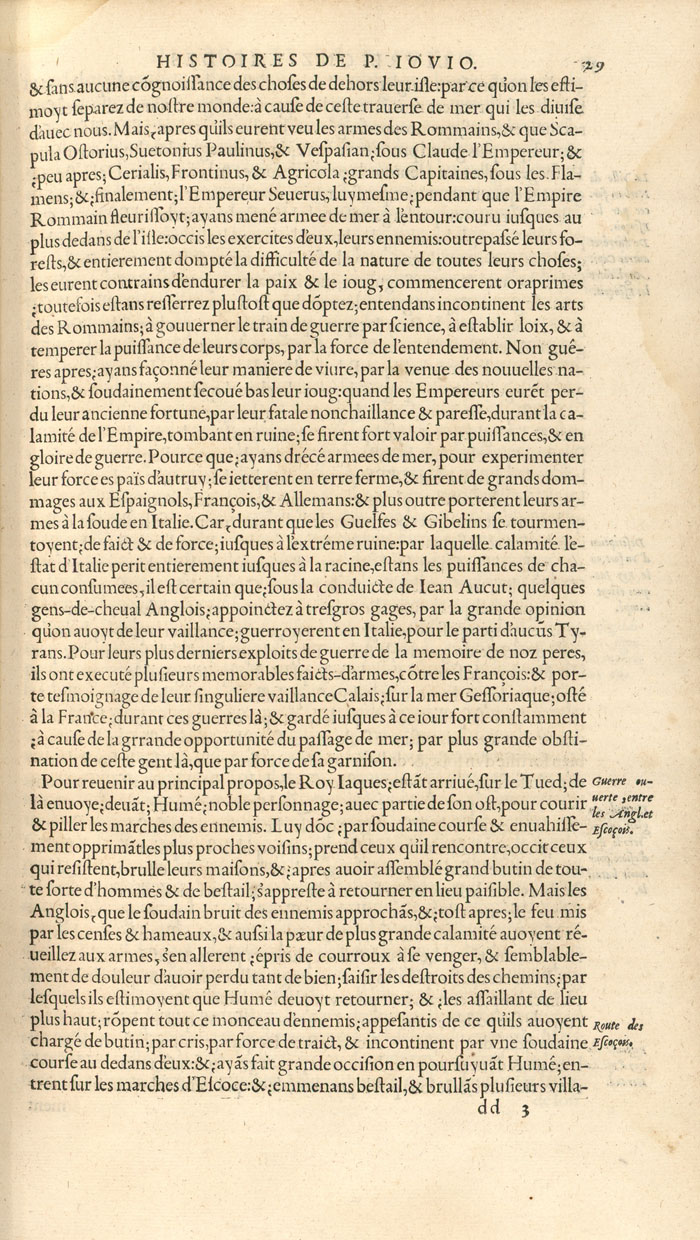 HISTOIRES DE P. IOVIO. 29
& sans aucune cõgnoissance des choses de dehors leur isle:par ce qu'on les esti-
moyt separez de nostre monde:à cause de ceste trauerse de mer qui les diuise
d'auec nous. Mais,apres qu'ils eurent veu les armes des Rommains,& que Sca-
pula Ostorius,Suetonius Paulinus,& Vespasian;sous Claude l'Empereur;&
;peu apres; Cerialis, Frontinus, & Agricola ;grands Capitaines, sous les Fla-
mens;&;finalement;l'Empereur Seuerus, luymesme;pendant que l'Empire
Rommain fleurissoyt;ayans mené armee de mer à l'entour:couru iusques au
plus dedans de l'isle:occis les exercites d'eux,leurs ennemis:outrepassé leurs fo-
rests,& entierement dompté la difficulté de la nature de toutes leurs choses;
les eurent contrains d'endurer la paix & le ioug, commencerent oraprimes
;toutefois estans resserrez plustost que dõptez;entendans incontinent les arts
des Rommains;à gouuerner le train de guerre par science, à establir loix, & à
temperer la puissance de leurs corps, par la force de l'entendement. Non guê-
res apres;ayans façonné leur maniere de viure, par la venue des nouuelles na-
tions,& soudainement secoué bas leur ioug:quand les Empereurs eurẽt per-
du leur ancienne fortune,par leur fatale nonchaillance & paresse,durant la ca-
lamité de l'Empire,tombant en ruine;se firent fort valoir par puissances,& en
gloire de guerre. Pource que;ayans drécé armees de mer, pour experimenter
leur force es païs d'autruy;se ietterent en terre ferme,& firent de grands dom-
mages aux Espaignols, François,& Allemans:& plus outre porterent leurs ar-
mes à la soude en Italie. Car,durant que les Guelfes & Gibelins se tourmen-
toyent;de faict & de force;iusques à l'extréme ruine:par laquelle calamité l'e-
stat d'Italie perit entierement iusques à la racine,estans les puissances de cha-
cun consumees,il est certain que;sous la conduicte de Iean Aucut; quelques
gens-de-cheual Anglois;appoinctez à tresgros gages, par la grande opinion
qu'on auoyt de leur vaillance;guerroyerent en Italie,pour le parti d'aucũs Ty-
rans. Pour leurs plus derniers exploits de guerre de la memoire de noz peres,
ils ont executé plusieurs memorables faicts-d'armes,cõtre les François:& por-
te tesmoignage de leur singuliere vaillance Calais;sur la mer Gessoriaque;osté
à la France;durant ces guerres là;& gardé iusques à ce iour fort constamment
;à cause de la grrande opportunité du passage de mer; par plus grande obsti-
nation de ceste gent là,que par force de sa garnison.
Pour reuenir au principal propos,le Roy Iaques;estãt arriué,sur le Tued;de
là enuoye;deuãt; Humé;noble personnage;auec partie de son ost,pour courir
& piller les marches des ennemis. Luy dõc ;par soudaine course & enuahisse-
ment opprimãt les plus proches voisins;prend ceux qu'il rencontre,occit ceux
qui resistent,brulle leurs maisons,&;apres auoir assemblé grand butin de tou-
te sorte d'hommes & de bestail;s'appreste à retourner en lieu paisible. Mais les
Anglois,que le soudain bruit des ennemis approchãs,&;tost apres;le feu mis
par les censes & hameaux,& aussi la pœur de plus grande calamité auoyent ré-
ueillez aux armes, s'en allerent ;épris de courroux à se venger, & semblable-
ment de douleur d'auoir perdu tant de bien;saisir les destroits des chemins;par
lesquels ils estimoyent que Humé deuoyt retourner; & ;les assaillant de lieu
plus haut; rõpent tout ce monceau d'ennemis;appesantis de ce qu'ils auoyent
chargé de butin; par cris,par force de traict, & incontinent par vne soudaine
course au dedans d'eux:&;ayãs fait grande occision en poursuyuãt Humé; en-
trent sur les marches d'Escoce:&;emmenans bestail,& brullãs plusieurs villa-
dd 3
Guerre ou-
uerte ,entre
les Angl.et
Escoçois.
Route des
Escoçois.